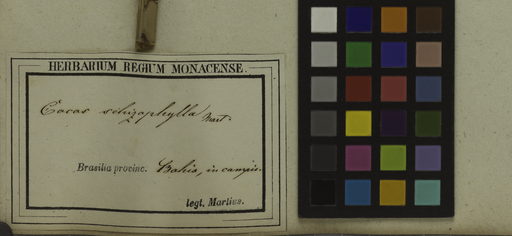 HERBARIUM REGIUM MONACENSE.
Cocos schizophylla Mart.
Brasilia provinc. Bahia, in campis.
legt. Martius.